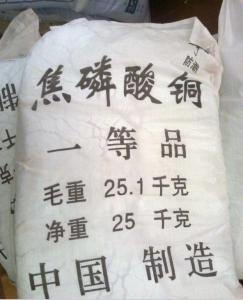 焦磷酸铜
一等品
毛重 25.1 千克
净重 25 千克
中国 制造